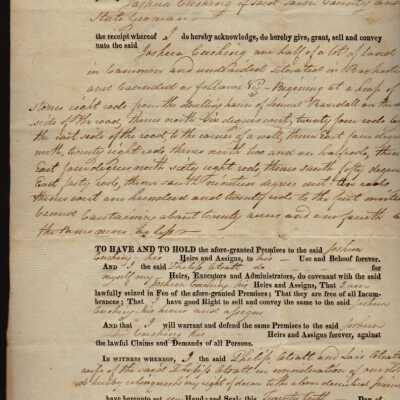 Joshua Cushing of said same County and
State Yeoman
the receipt whereof I do hereby acknowledge, do hereby give, grant, sell and convey
unto the said
Joshua Cushing one half of a lot of land
in Common and undivided situated in
and bounded as follows Beginning at a heap of
stones eight rods from the dwelling house of Randall on the
side of the road, thence north six degrees west, twenty four rods
the east side of the road, to the corner of a wall, thence east four degrees
north, twenty eight rods thence north two and an half rods, thence
East four degrees north sixty eight rods, thence south fifty degrees
East forty rods, thence south degrees west rods
thence west one hundred and twenty rods to the first mentioned
bound Containing about twenty acres and one fourth
the same more or less
TO HAVE AND TO HOLD the afore-granted Premises to the said Joshua
Cushing his Heirs and Assigns, to his Use and Behoof forever.
AND I the said do for
myself my Heirs, Executors and Administrators, do covenant with the said
Joshua Cushing his Heirs and Assigns, That I am
lawfully seized in Fee of the afore-granted Premises; That they are free of all Incum-
brances; That I have good Right to sell and convey the same to the said Joshua
Cushing his heirs and assigns
AND that I will warrant and defend the same Premises to the said Joshua
Cushing his Heirs and Assigns forever, against
the lawful Claims and Demands of all Persons.
IN WITNESS WHEREOF, I the said and
wife of the said in
my right of dower to the above described premises
have hereunto set our Hand and Seals this Day of